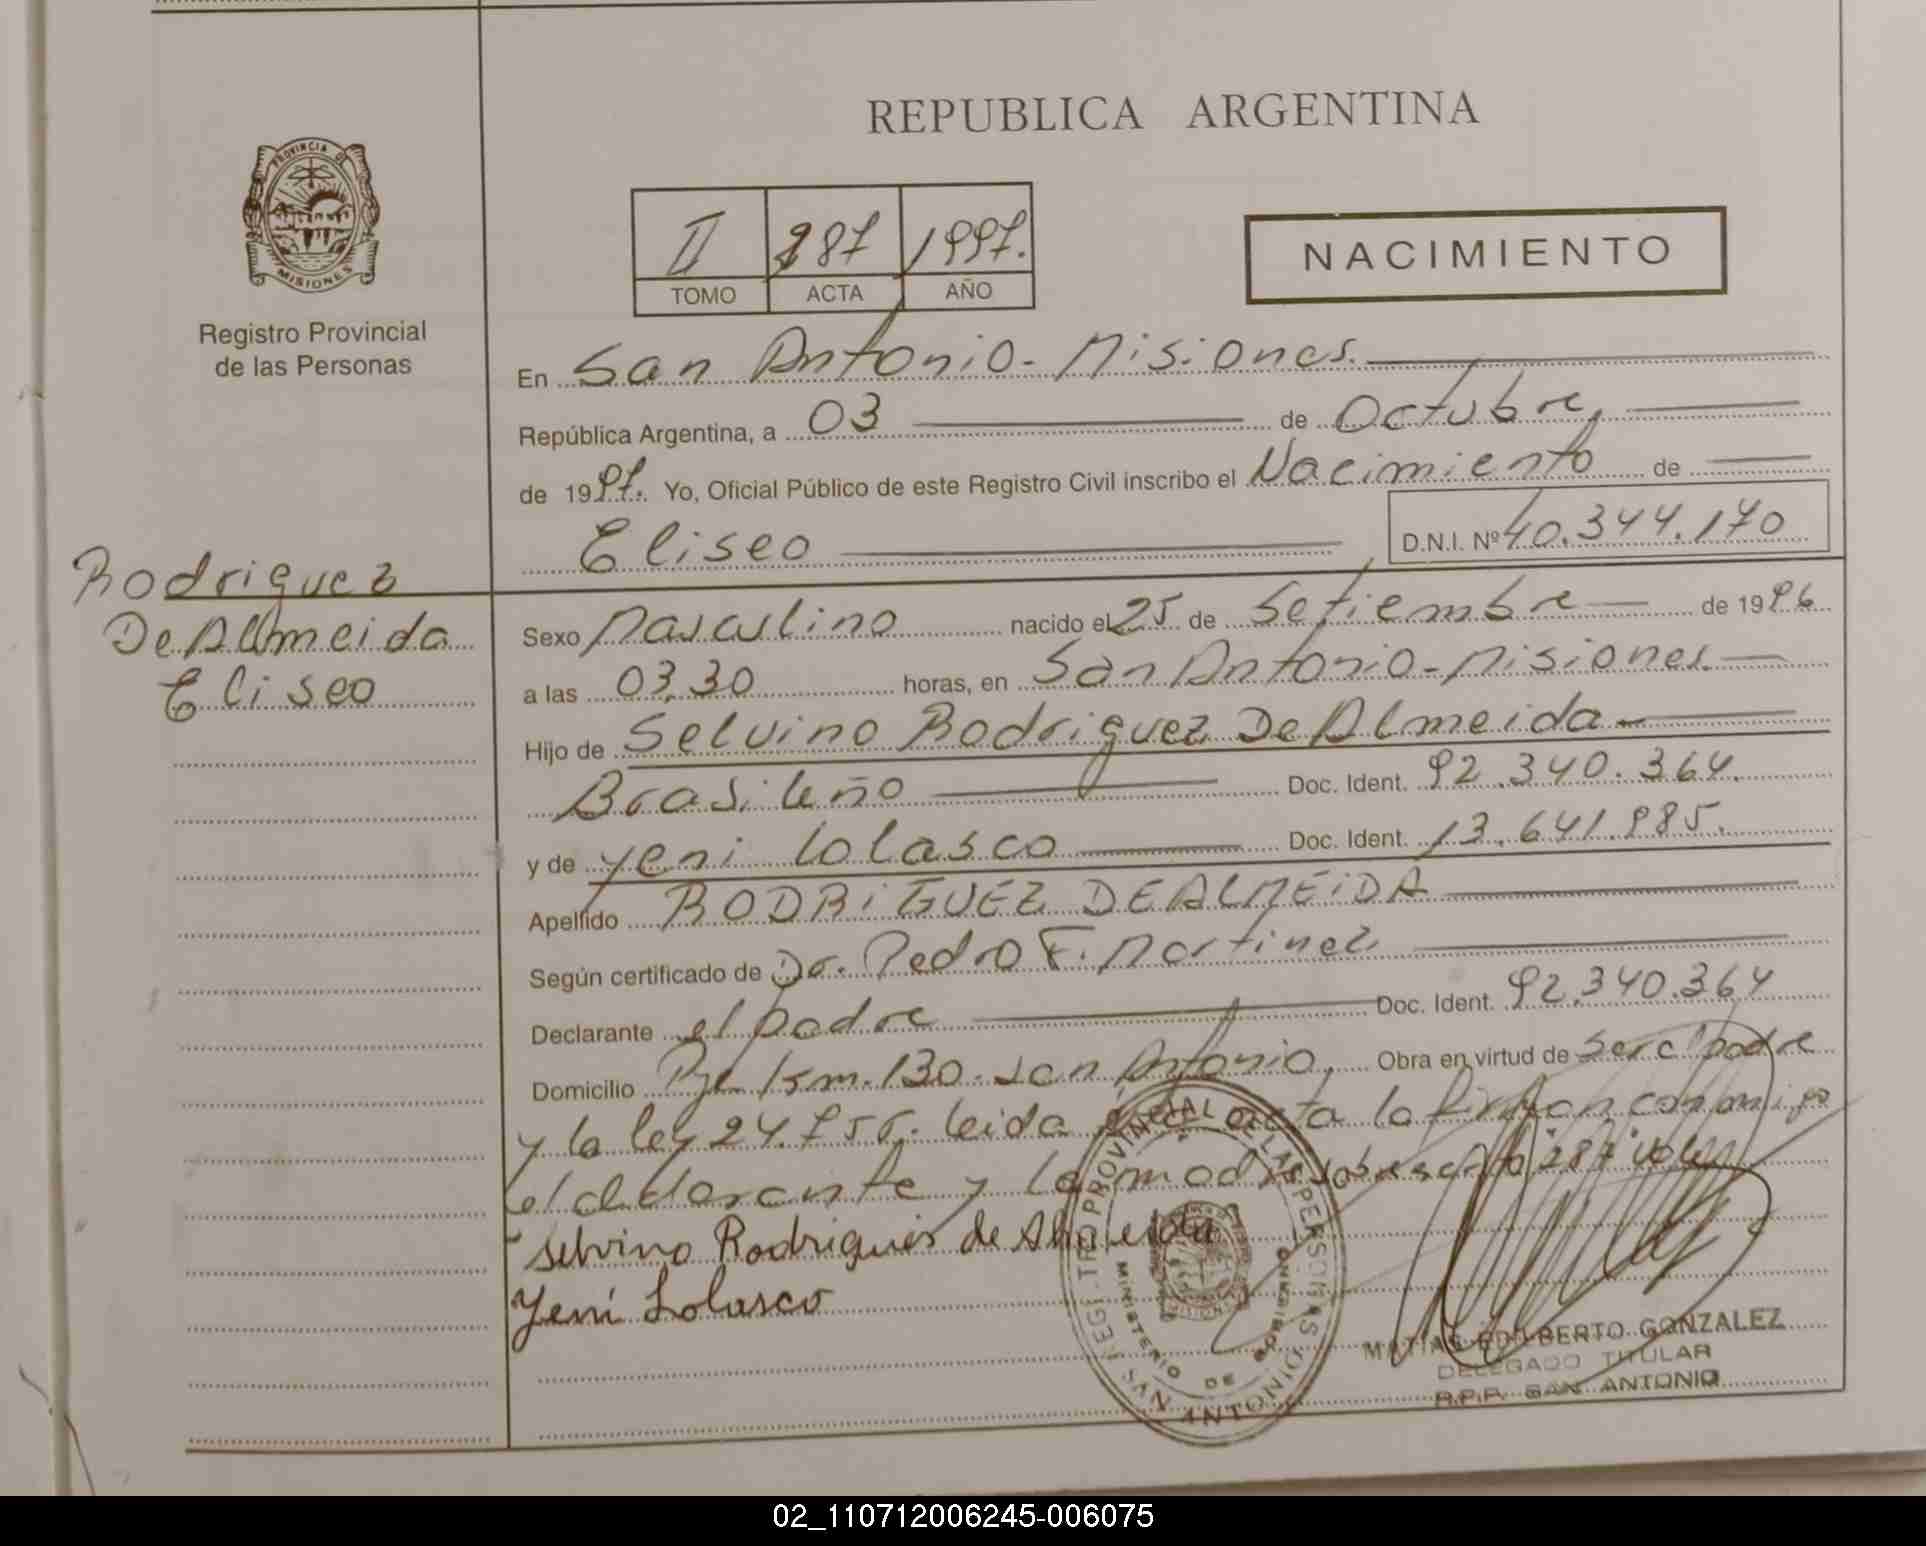 REPUBLICA ARGENTINA
PROVINCIA DE
MISIONES
Registro Provincial
de las Personas
II 287 1997.
TOMO ACTA AÑO
NACIMIENTO
En San Antonio - Misiones.
República Argentina, a 03 de Octubre,
de 1997. Yo, Oficial Público de este Registro Civil inscribo el Nacimiento de
Eliseo D.N.I. Nº 40.344.170
Rodriguez
De Almeida
Eliseo
Sexo Masculino nacido el 25 de Setiembre de 1996
a las 03,30 horas, en San Antonio - Misiones.
Hijo de Selvino Rodriguez De Almeida
Brasileño Doc. Ident. 92.340.364.
y de Yeni Lolasco Doc. Ident. 13.641.985.
Apellido RODRiGUEZ DE ALMEiDA
Según certificado de Dr. Pedro F. Martinez
Declarante el padre Doc. Ident. 92.340.364
Domicilio Pje Km. 130. San Antonio, Obra en virtud de ser el padre
y la ley 24. leida el acta la firman conmigo
el declarante y la madre sobrescrito "287" vale
Selvino Rodrigues de Almeida
Yeni Lolasco
REGISTRO PROVINCIAL DE LAS PERSONAS
MINISTERIO DE GOBIERNO
SAN ANTONIO
MATIAS EDILBERTO GONZALEZ
DELEGADO TITULAR
R.P.P. SAN ANTONIO
02_110712006245-006075